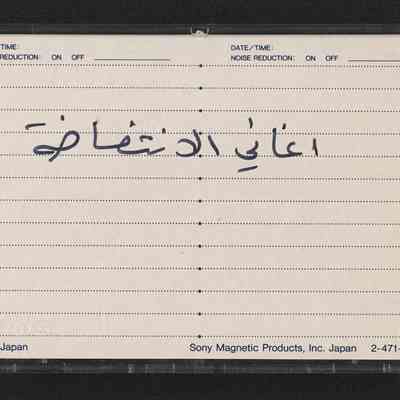 TIME: DATE/TIME:
REDUCTION: ON OFF NOISE REDUCTION: ON OFF
اغاني الانتفاضة
Japan Sony Magnetic Products, Inc. Japan 2-471-